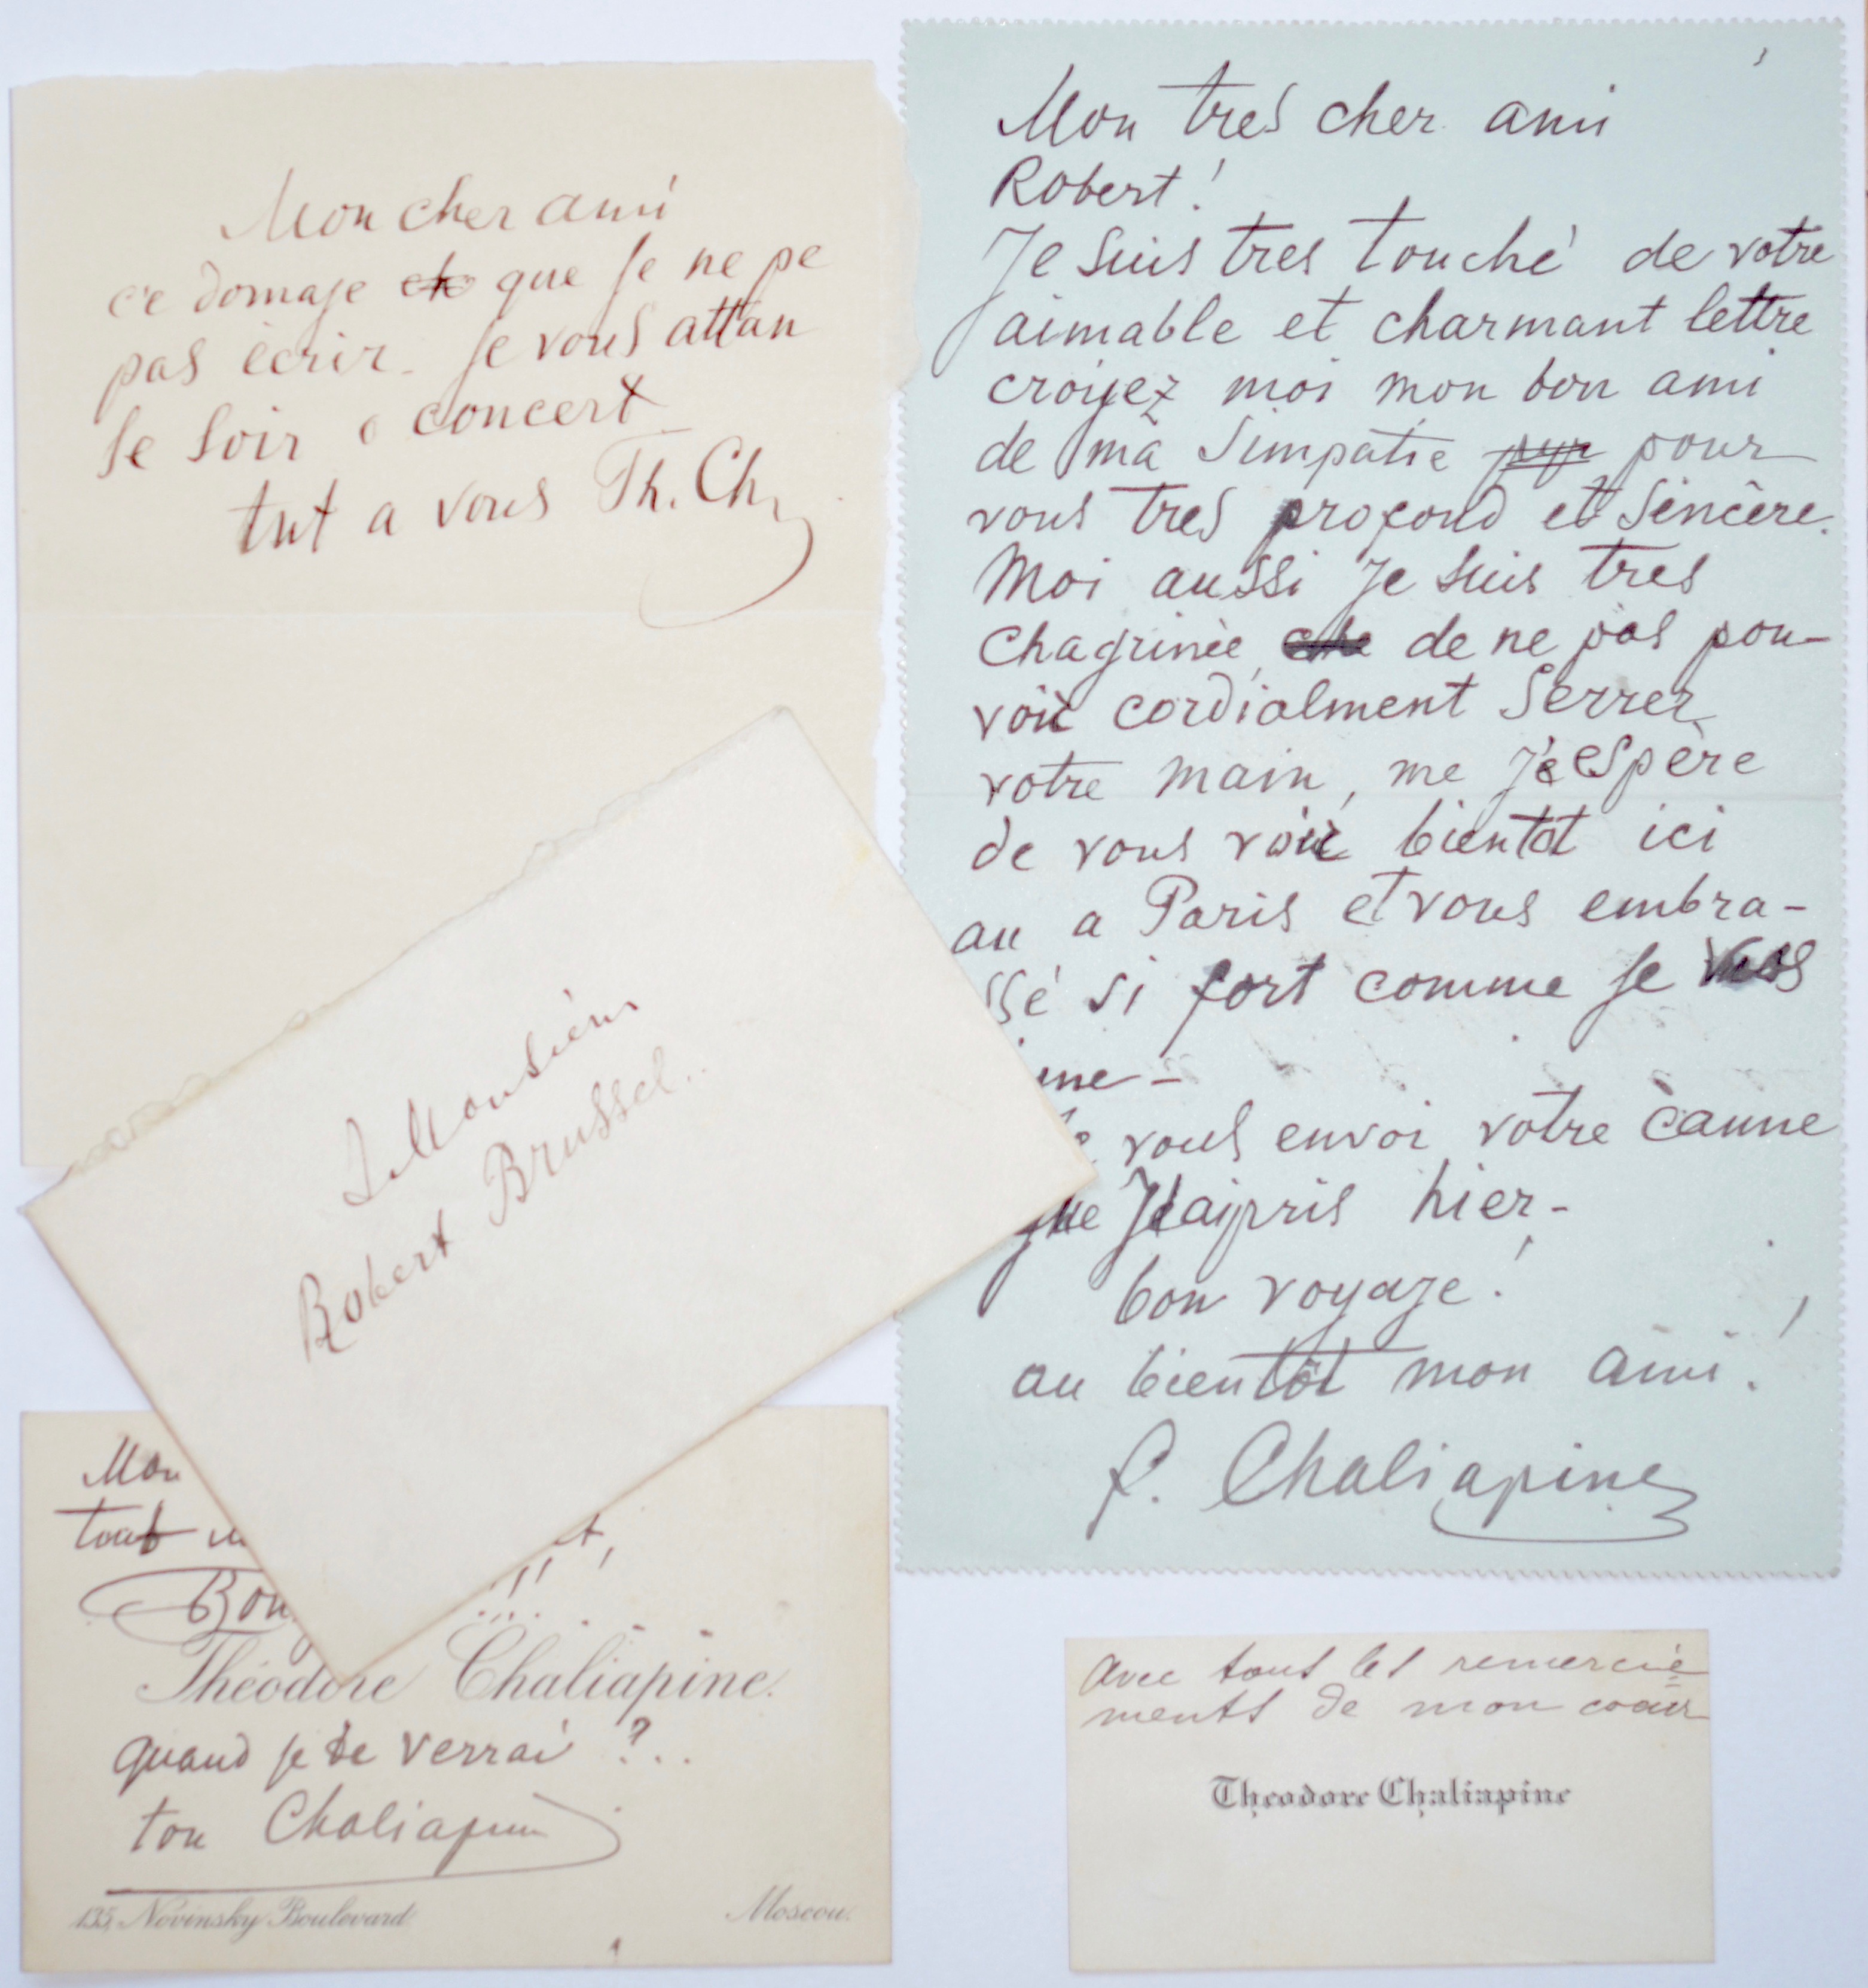 Mon cher ami
c'e domaje que je ne pe
pas écrir. Je vous attan
se soir o concert
tut a vous Th. Ch.
Mon tres cher ami
Robert!
Je suis tres touché de votre
aimable et charmant lettre
croiyez moi mon bon ami
de ma simpatie pour
vous tres profond et sincère.
Moi aussi je suis tres
chagrinée, de ne pas pou-
voir cordialment serrer
votre main, me j'espère
de vous voir bientot ici
au a Paris et vous embra-
ssé si fort comme je vous
me -
vous envoi votre canne
que j'ai pris hier -
bon voyaje!
au bientôt mon ami!
F. Chaliapine
Monsieur
Robert Brussel.
Mon
tout
Bon
!!!...
Théodore Chaliapine.
quand je te verrai ?..
ton Chaliapine
135, Novinsky Boulevard
Moscou.
avec tous les remercie
ments de mon coeur
Theodore Chaliapine